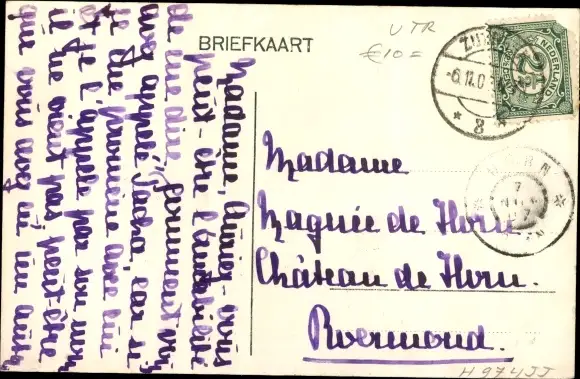 BRIEFKAART
UTR
€10=
NEDERLAND
8
HORN
7
Madame
Magnée de Horn
Château de Horn.
Roermond.
H 974JJ
Madame, Auriez-vous
peut-être l'amabilité
de me dire, comment
vous avez appelé Pacha, car je
me promène avec lui
et je l'appelle par son nom
il ne vient pas, peut-être
que vous avez eu un autre